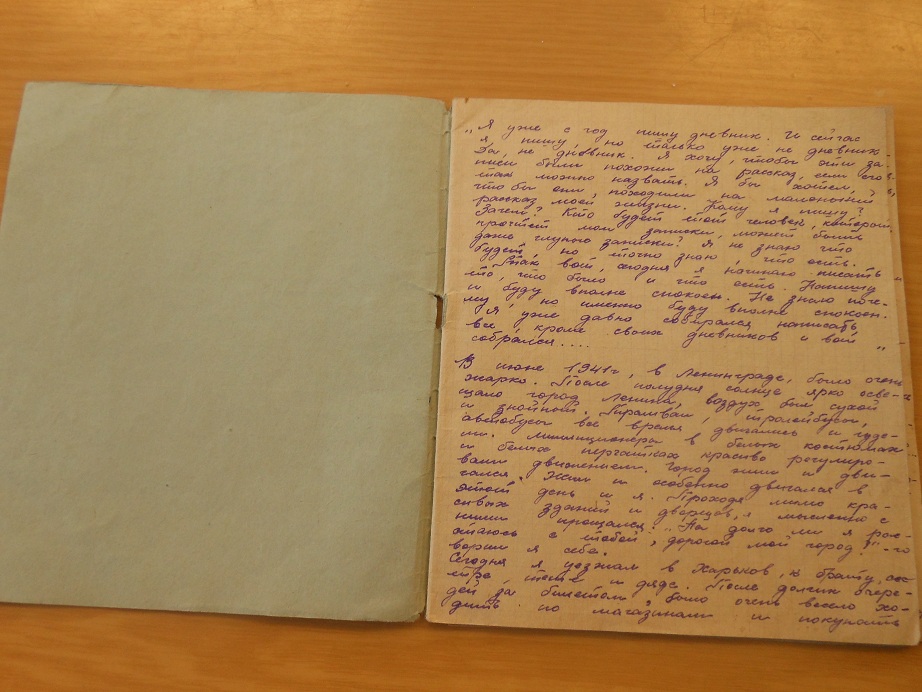 „Я уже с год пишу дневник. И сейчас
я пишу, но только уже не дневник.
Да, не дневник. Я хочу, чтобы эти за-
писи были похожи на рассказ, если его
так можно назвать. Я бы хотел,
чтобы они, походили на маленький
рассказ моей жизни. Кому я пишу?
Зачем? Кто будет этот человек, который
прочтет мои записки, может быть
даже глупые записки? Я не знаю что
будет, но точно знаю, что есть.
Так вот, сегодня я начинаю писать
то, что было и что есть. Напишу
и буду вполне спокоен. Не знаю поче-
му, но именно буду вполне спокоен.
Я уже давно собирался написать
все, кроме своих дневников и вот
собрался.... „
В июне 1941г, в Ленинграде, было очень
жарко. После полудня солнце ярко осве-
щало город Ленина, воздух был сухой
и знойный. Трамваи, тролейбусы,
автобусы все время двигались и гуде-
ли. Милиционеры в белых костюмах
и белых перчатках красиво регулиро-
вали движением. Город жил и дви-
гался. Жил и особенно двигался в
этот день и я. Проходя мимо кра-
сивых зданий и дворцов, я мысленно с
ними прощался. „На долго ли я рас-
стаюсь с тобой, дорогой мой город?" - го
ворил я себе.
Сегодня я уезжал в Харьков, к брату, сес-
тре, тете и дяде. После долгих очере-
дей за билетом, было очень весело хо-
дить по магазинам и покупать